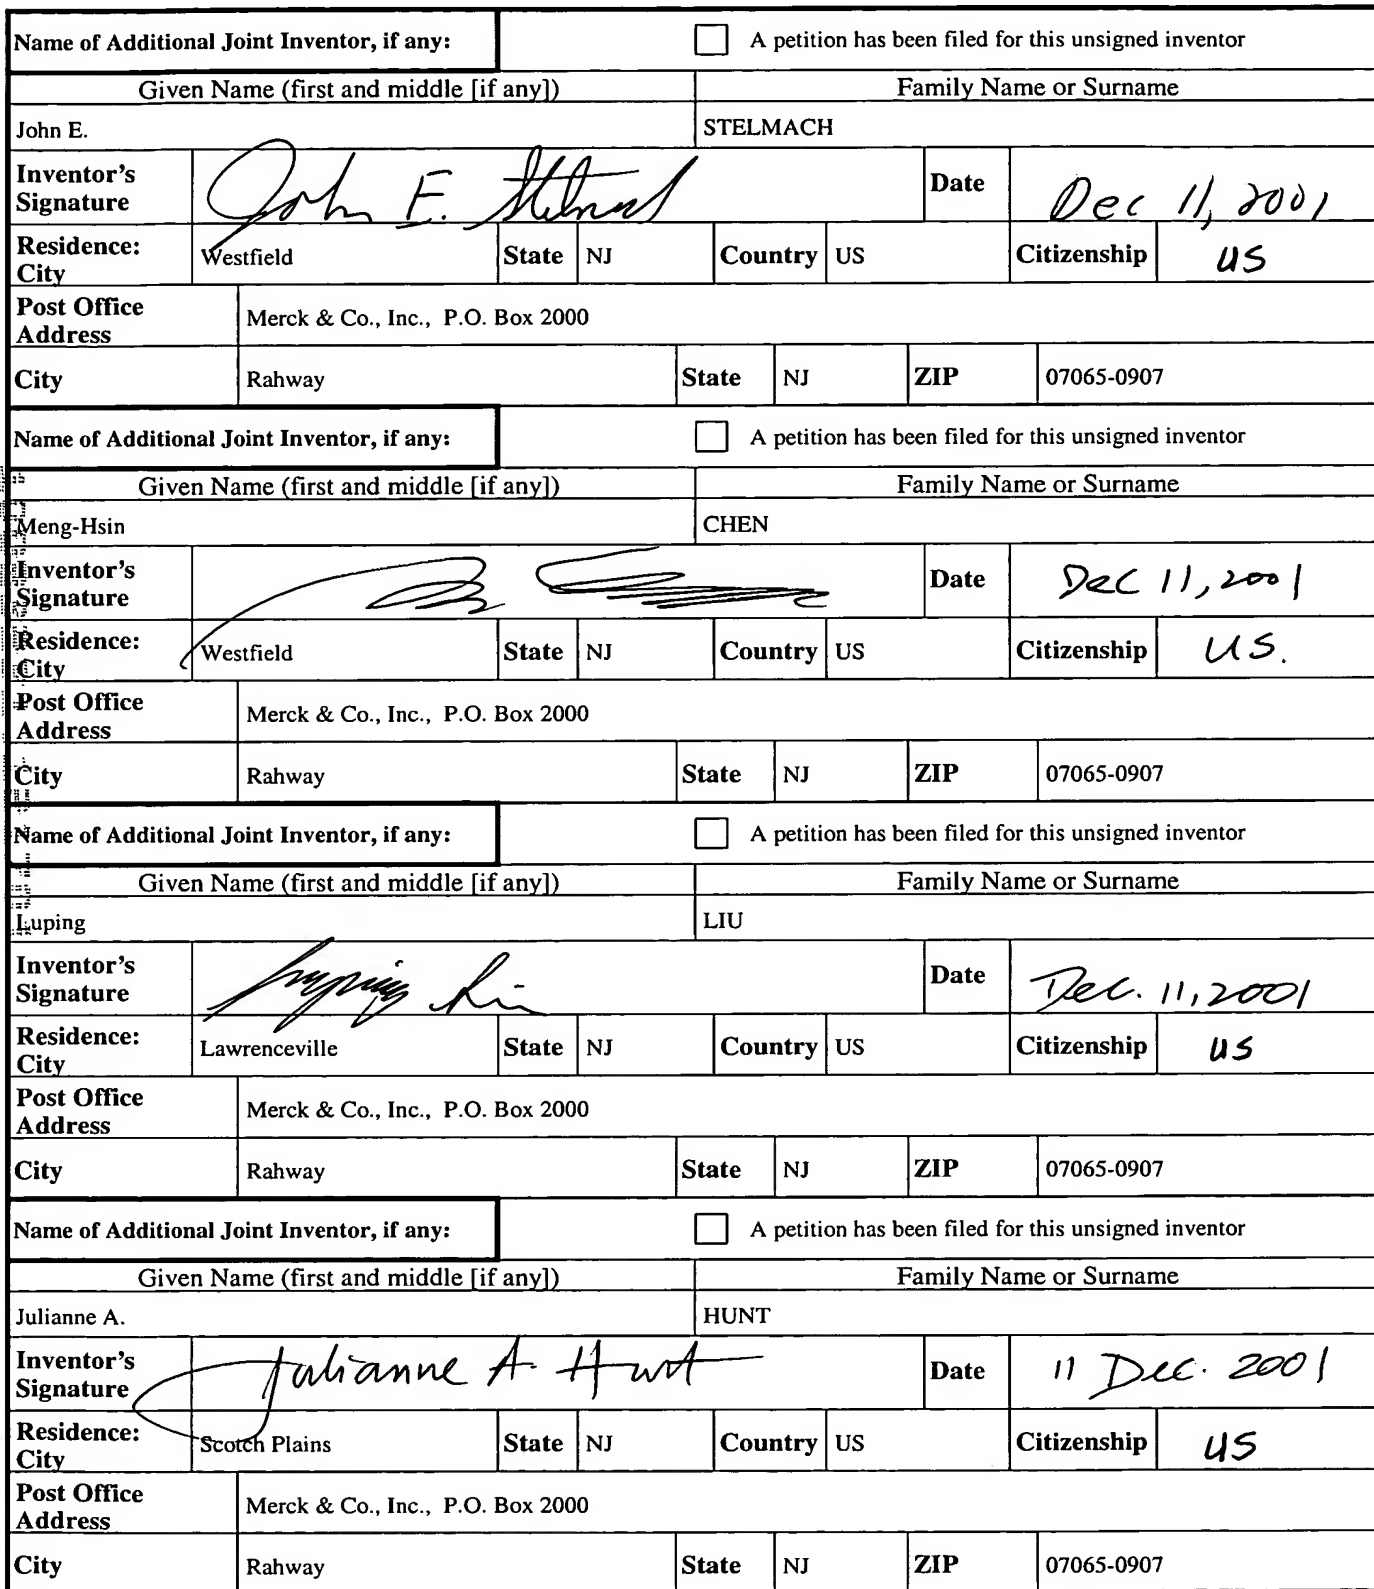 Name of Additional Joint Inventor, if any: A petition has been filed for this unsigned inventor
Given Name (first and middle [if any]) Family Name or Surname
John E. STELMACH
Inventor's Signature John E. Stelmach Date Dec 11, 2001
Residence: City Westfield State NJ Country US Citizenship US
Post Office Address Merck & Co., Inc., P.O. Box 2000
City Rahway State NJ ZIP 07065-0907
Name of Additional Joint Inventor, if any: A petition has been filed for this unsigned inventor
Given Name (first and middle [if any]) Family Name or Surname
Meng-Hsin CHEN
Inventor's Signature Date Dec 11, 2001
Residence: City Westfield State NJ Country US Citizenship US.
Post Office Address Merck & Co., Inc., P.O. Box 2000
City Rahway State NJ ZIP 07065-0907
Name of Additional Joint Inventor, if any: A petition has been filed for this unsigned inventor
Given Name (first and middle [if any]) Family Name or Surname
Luping LIU
Inventor's Signature Luping Liu Date Dec. 11, 2001
Residence: City Lawrenceville State NJ Country US Citizenship US
Post Office Address Merck & Co., Inc., P.O. Box 2000
City Rahway State NJ ZIP 07065-0907
Name of Additional Joint Inventor, if any: A petition has been filed for this unsigned inventor
Given Name (first and middle [if any]) Family Name or Surname
Julianne A. HUNT
Inventor's Signature Julianne A. Hunt Date 11 Dec. 2001
Residence: City Scotch Plains State NJ Country US Citizenship US
Post Office Address Merck & Co., Inc., P.O. Box 2000
City Rahway State NJ ZIP 07065-0907